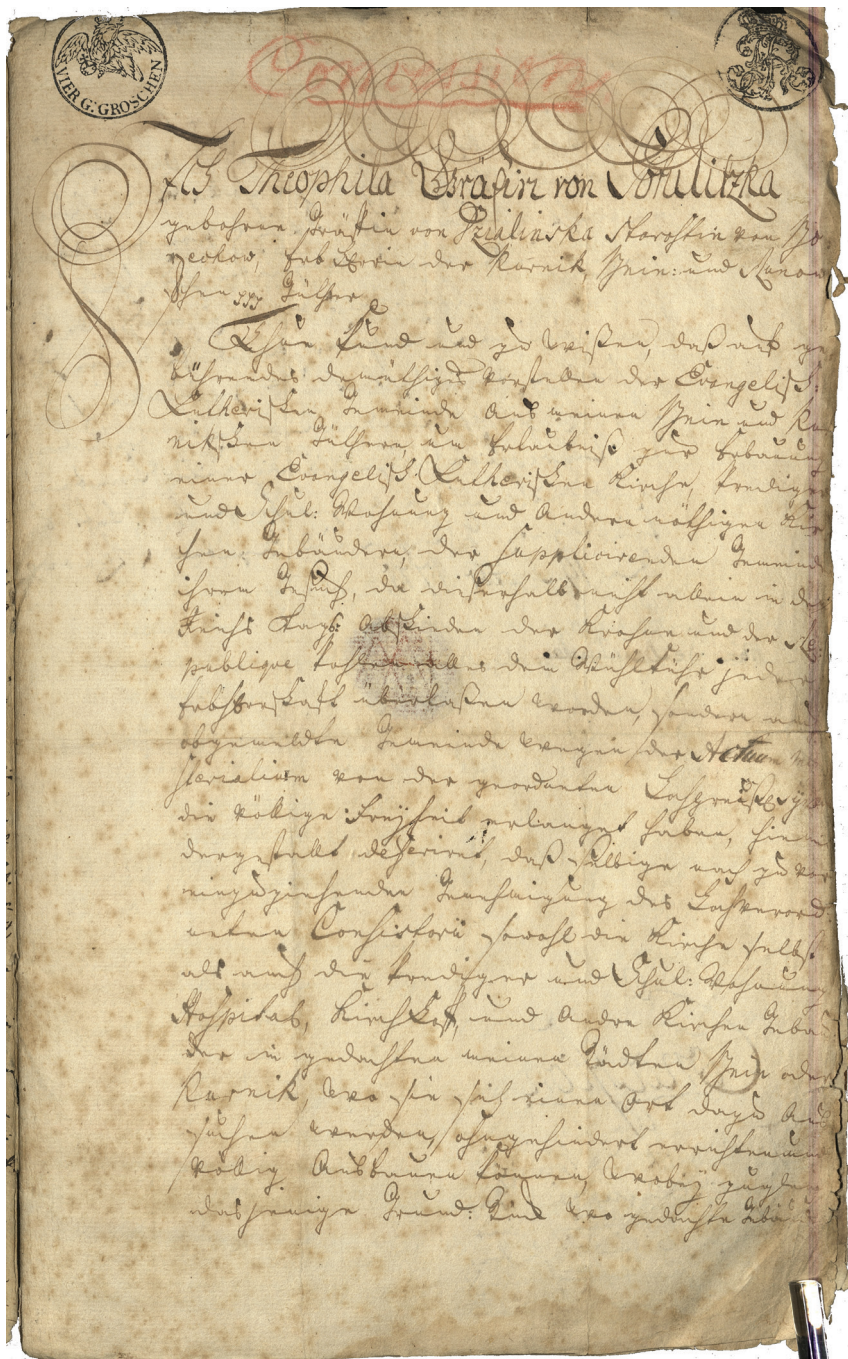 VIER G. GROSCHEN
Concession
Ich Theophila Gräfin von Potulitzka
gebohrne Gräffin von Dzialinska Starostin von
Erbherrin der Kurnik, Bnin: und
schen Güther
Thue kund und zu wißen, daß auf ge
bührendes demüthiges Vorstellen der Evangelisch:
Lutherischen Gemeinde aus meinen Bnin und Kur
nikschen Güthern, um Erlaubniß zur Erbauung
einer Evangelisch Lutherischen Kirche, Prediger
und Schul: Wohnung und andern nöthigen Kir
chen Gebäudern, der supplicirenden Gemeinde
ihrem Gesuch, da dießerhalb nicht allein in den
Reichs Tags: Abschieden der Krohne und der Re:
publique Pohlen alles dem Willkühr jeder
Erbherrschaft überlaßen worden, sondern auch
obgemeldte Gemeinde wegen der Actuum
sterialium von der geordneten
die völlige Freyheit erlanget haben, hiemit
dergestallt deferiret, daß selbige nach zu vor
einzuziehenden Genehmigung des
neten Consistorii sowohl die Kirche selbst
als auch die Prediger und Schul: Wohnung
Hospital, Kirchhoff, und andre Kirchen Gebäu
der in gedachten meinen Städten Bnin oder
Kurnik, wo sie sich einen Ort dazu aus
suchen werden, ohngehindert errichten und
völlig Ausbauen können, wobey zugleich
dasjenige Grund: Stück wo gedachte Gebäu